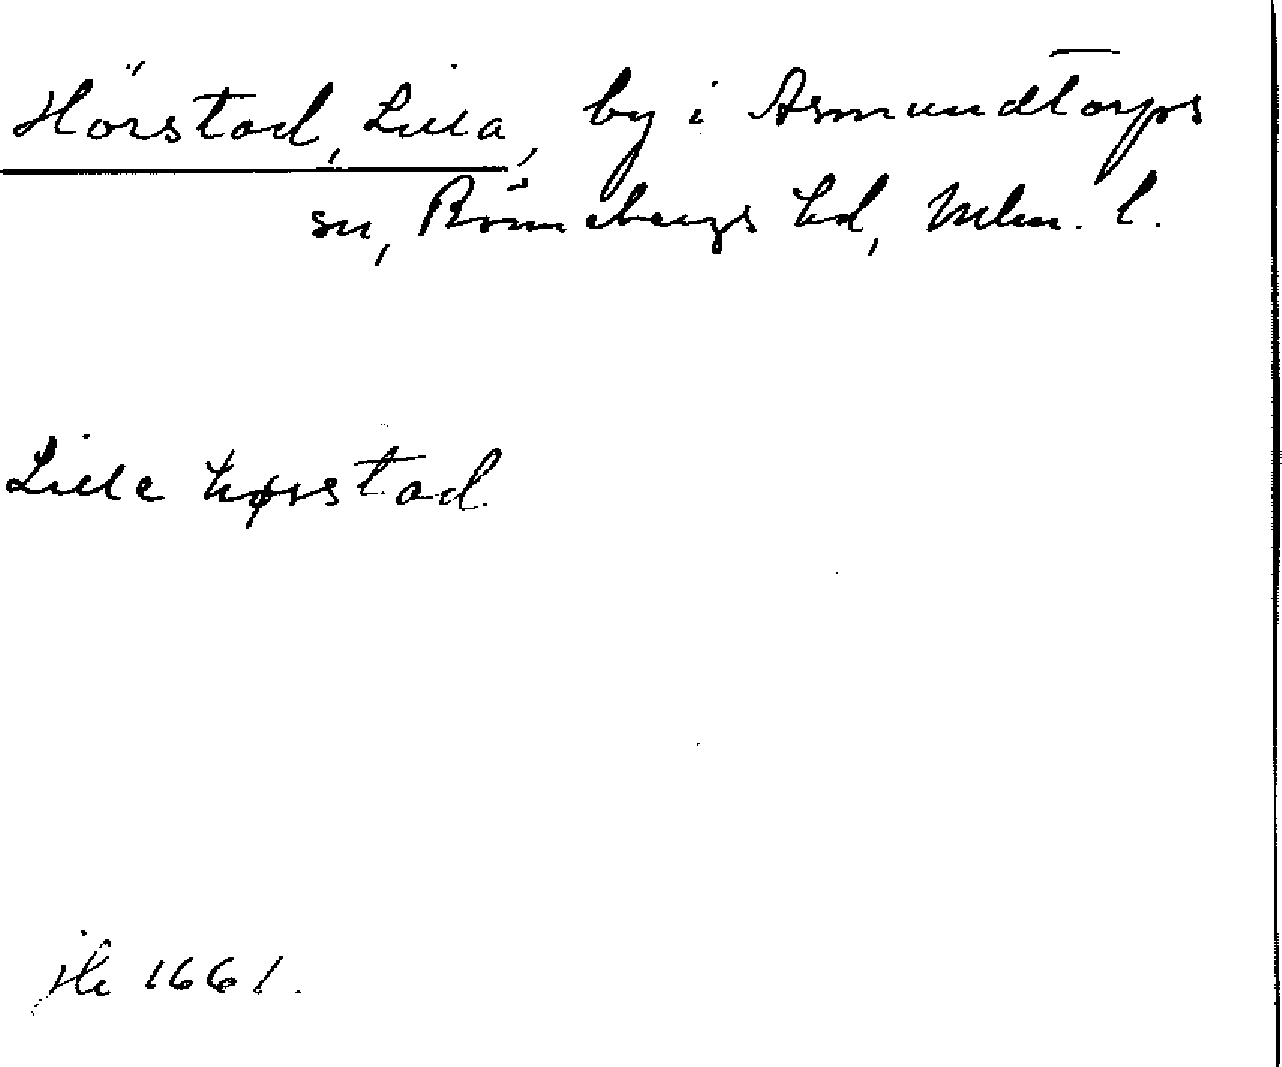 Hörstad, Lilla, by i Asmundtorps
sn, Rönnebergs hd, Mlm. l.
Lille hørstad
Jb 1661.